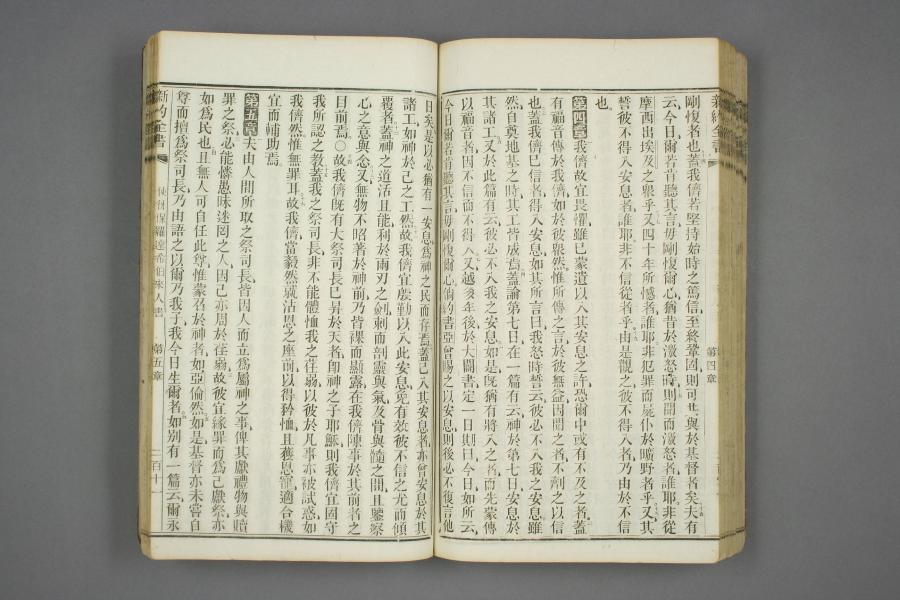 新約全書
第四章
剛愎者也蓋我儕若堅持始時之篤信至終鞏固則可共與於基督者矣夫有
云今日爾若肯聽其言毋剛愎爾心猶昔於激怒時則聞而激怒者誰耶非從
摩西出埃及之衆乎又四十年所憾者誰耶非犯罪而屍仆於曠野者乎又其
誓彼不得入安息者誰耶非不信從者乎由是觀之彼不得入者乃由於不信
也
第四章 我儕故宜畏懼雖已蒙遺以入其安息之許恐爾中或有不及之者蓋
有福音傳於我儕如於彼衆然惟所傳之言於彼無益因聞之者不劑之以信
也蓋我儕已信者得入安息如其所言曰我怒時誓云彼必不入我之安息雖
然自奠地基之時其工皆成焉蓋論第七日在一篇有云神於第七日安息於
其諸工又於此篇有云彼必不入我之安息如是既猶有將入之者而先蒙傳
以福音者因不信而不得入又越多年後於大闢書定一日期曰今日如所云
今日爾若肯聽其言毋剛愎爾心倘約書亞曾賜之以安息則後必不復言他
日矣是以必猶有一安息爲神之民而存焉蓋已入其安息者亦曾安息於其
諸工如神於己之工然故我儕宜殷勤以入此安息免有效彼不信之尤而傾
覆者蓋神之道活且能利於兩刃之劍刺而剖靈與氣及骨與髓之間且鑒察
心之意與念又無物不昭著於神前乃皆祼而顯露在我儕陳事於其前者之
目前焉〇故我儕既有大祭司長已昇於天者卽神之子耶穌則我儕宜固守
我所認之教蓋我之祭司長非不能體恤我之荏弱以彼於凡事亦被試惑如
我儕然惟無罪耳故我儕當毅然就沾恩之座前以得矜恤且獲恩寵適合機
宜而輔助焉
第五章 夫由人間所取之祭司長皆因人而立爲屬神之事俾其獻禮物與贖
罪之祭必能憐愚昧迷罔之人因己亦周於荏弱故彼宜緣罪而爲己獻祭亦
如爲民也且無人可自任此尊惟蒙召於神者如亞倫然如是基督亦未嘗自
尊而擅爲祭司長乃由語之以爾乃我子我今日生爾者如別有一篇云爾永
新約全書
使徒保羅達希伯來人書 第五章
二百十一